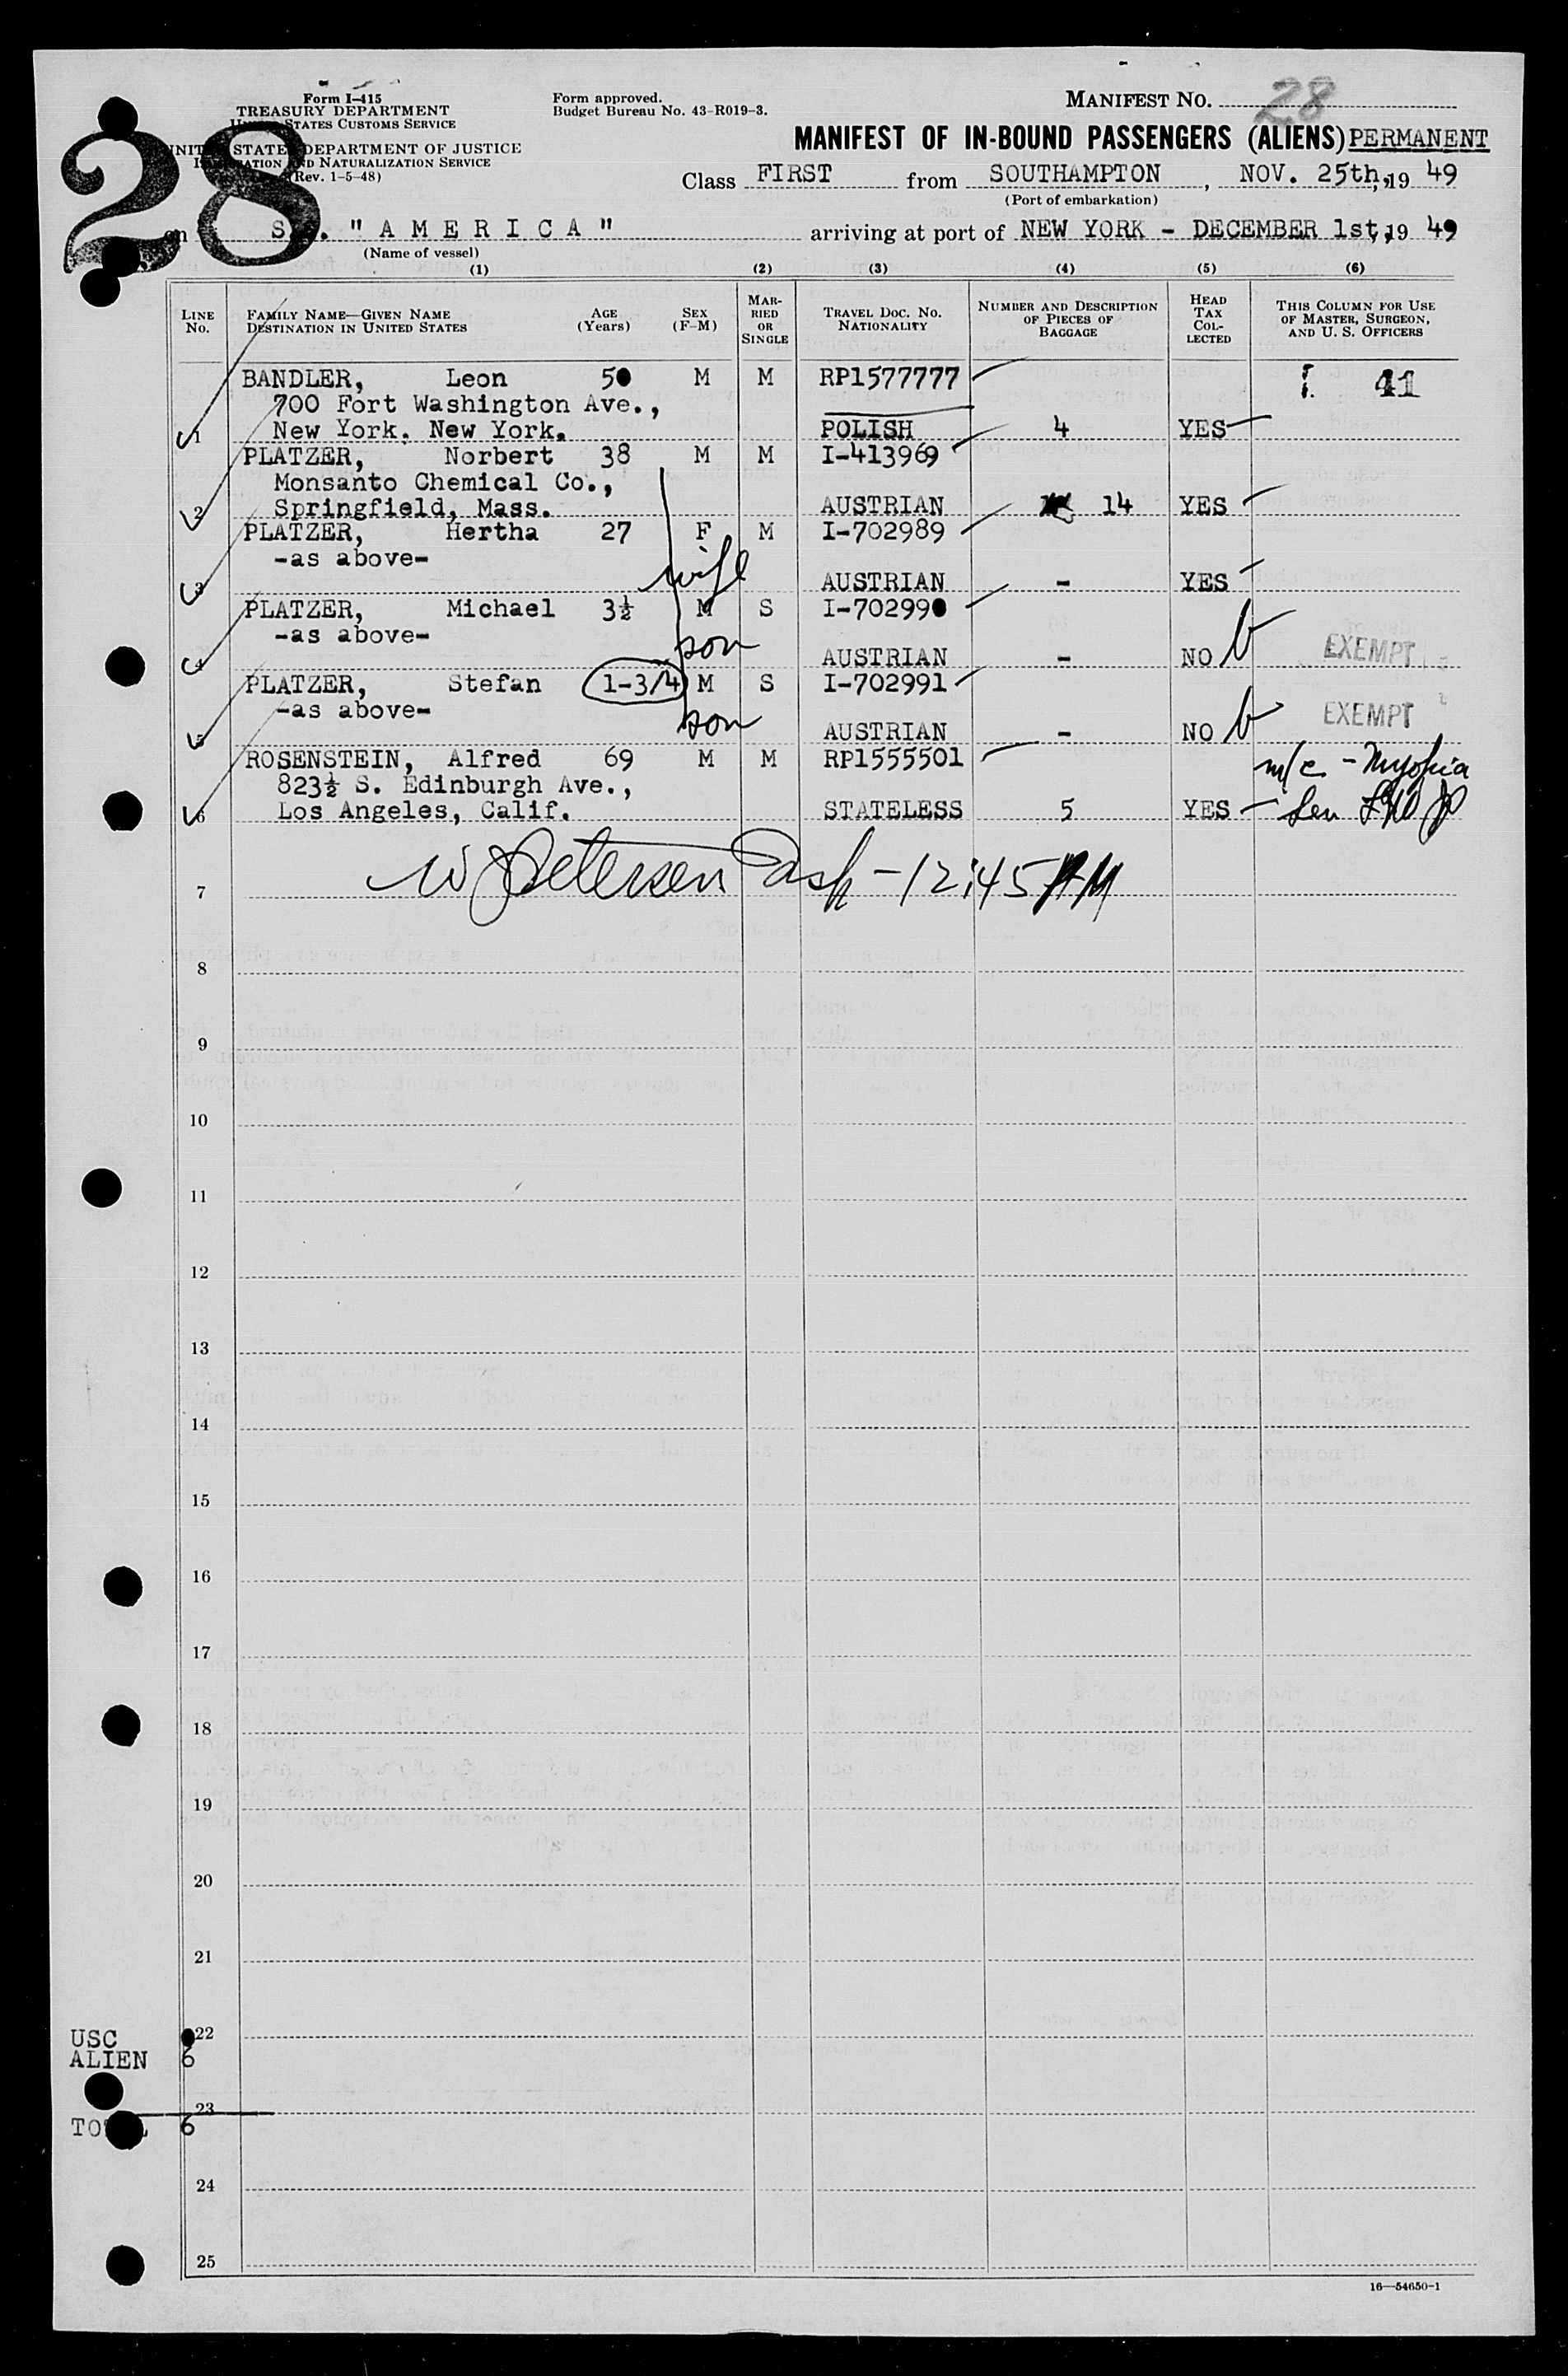 Form I-415
TREASURY DEPARTMENT
UNITED STATES CUSTOMS SERVICE
UNITED STATES DEPARTMENT OF JUSTICE
IMMIGRATION AND NATURALIZATION SERVICE
(Rev. 1-5-48)
28
Form approved.
Budget Bureau No. 43-R019-3.
MANIFEST NO. 28
MANIFEST OF IN-BOUND PASSENGERS (ALIENS) PERMANENT
Class FIRST from SOUTHAMPTON, NOV. 25th, 19 49
(Port of embarkation)
on S.S. "AMERICA" arriving at port of NEW YORK - DECEMBER 1st, 19 49
(Name of vessel)
(1) (2) (3) (4) (5) (6)
LINE No. FAMILY NAME—GIVEN NAME DESTINATION IN UNITED STATES AGE (Years) SEX (F-M) MARRIED OR SINGLE TRAVEL DOC. NO. NATIONALITY NUMBER AND DESCRIPTION OF PIECES OF BAGGAGE HEAD TAX COLLECTED THIS COLUMN FOR USE OF MASTER, SURGEON, AND U. S. OFFICERS
BANDLER, Leon 50 M M RP1577777 41
700 Fort Washington Ave.,
1 New York. New York. POLISH 4 YES
PLATZER, Norbert 38 M M I-413969
Monsanto Chemical Co.,
2 Springfield, Mass. AUSTRIAN 14 YES
PLATZER, Hertha 27 F M I-702989
-as above- wife
3 AUSTRIAN - YES
PLATZER, Michael 3½ M S I-702990
-as above- son
4 AUSTRIAN - NO EXEMPT
PLATZER, Stefan 1-3/4 M S I-702991
-as above- son
5 AUSTRIAN - NO EXEMPT
ROSENSTEIN, Alfred 69 M M RP1555501 m/c - Myopia
823½ S. Edinburgh Ave.,
6 Los Angeles, Calif. STATELESS 5 YES Sen
W Petersen - 12:45 PM
7
8
9
10
11
12
13
14
15
16
17
18
19
20
21
22
USC
ALIEN 6
23
TOTAL 6
24
25
16—54650-1